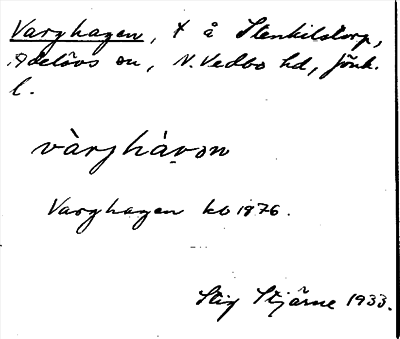 Varghagen, t å Stenkilstorp,
Adelövs sn, N. Vedbo hd, Jönk.
l.
vàrjhàvon
Varghagen kb 1876.
Stig Stjärne 1933.